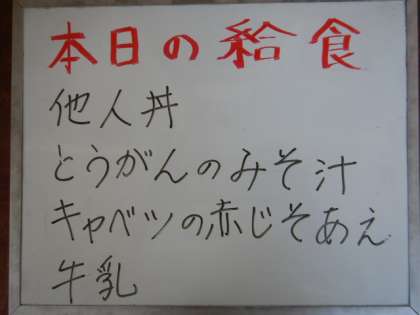 本日の給食
他人丼
とうがんのみそ汁
キャベツの赤じそあえ
牛乳